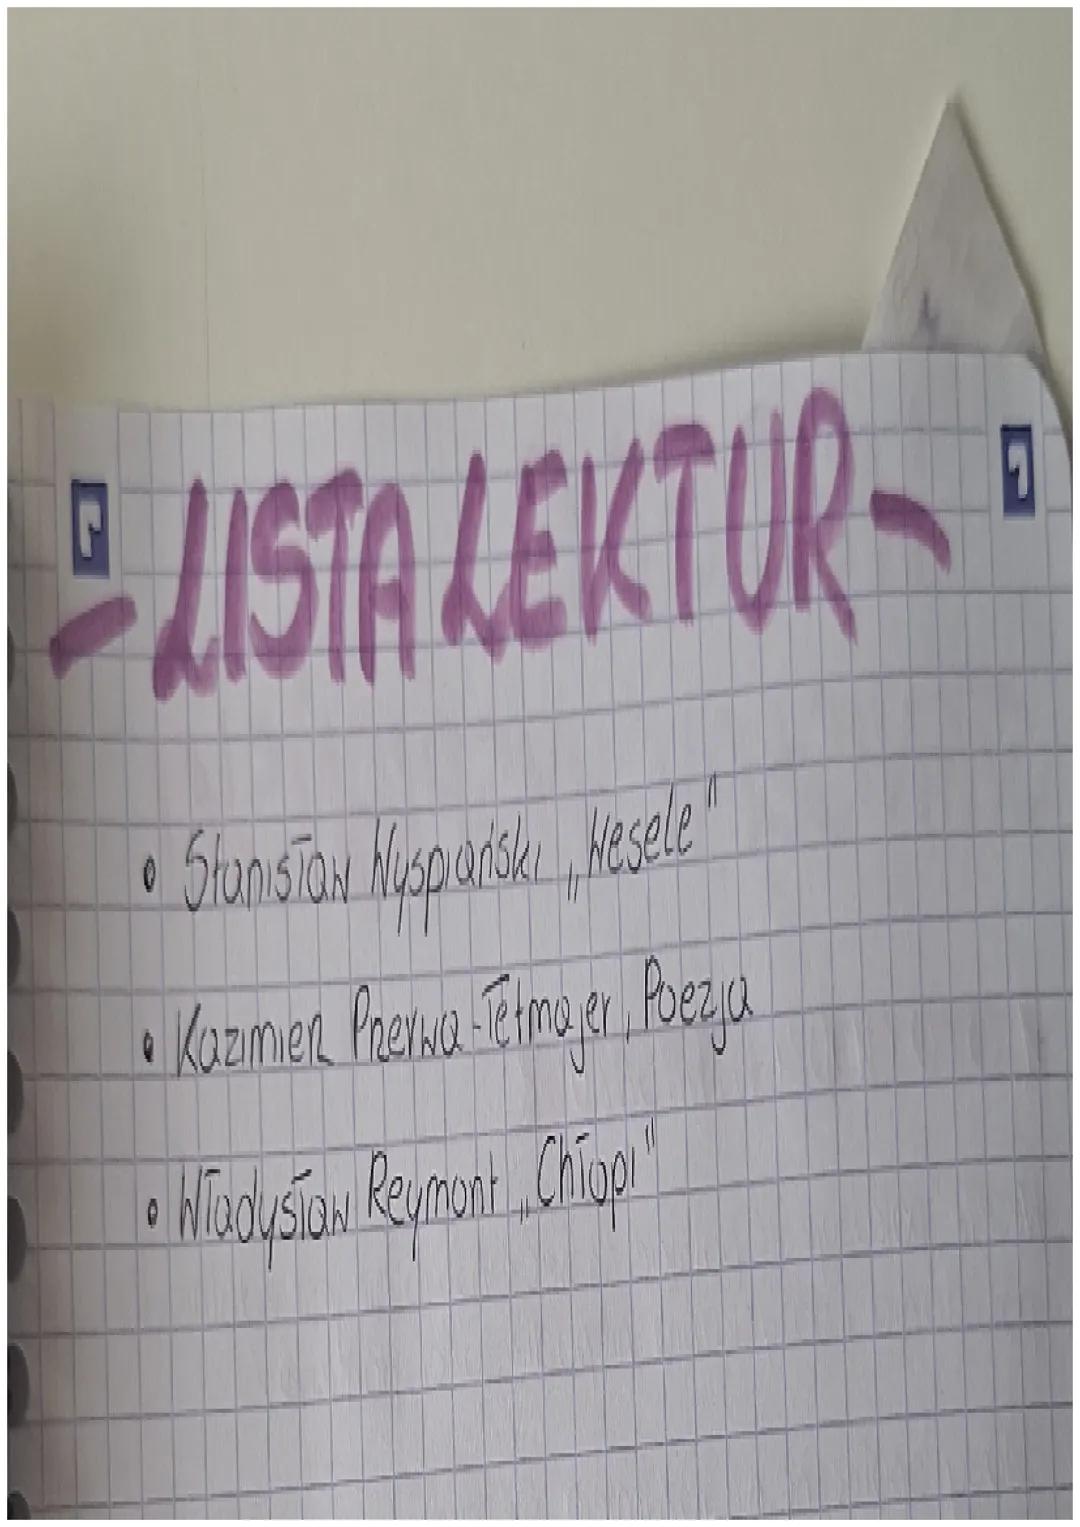 - LISTA LEKTUR -
• Stanisław Wyspiański „Wesele"
• Kazimierz Przerwa-Tetmajer, Poezja
• Władysław Reymont „Chłopi"